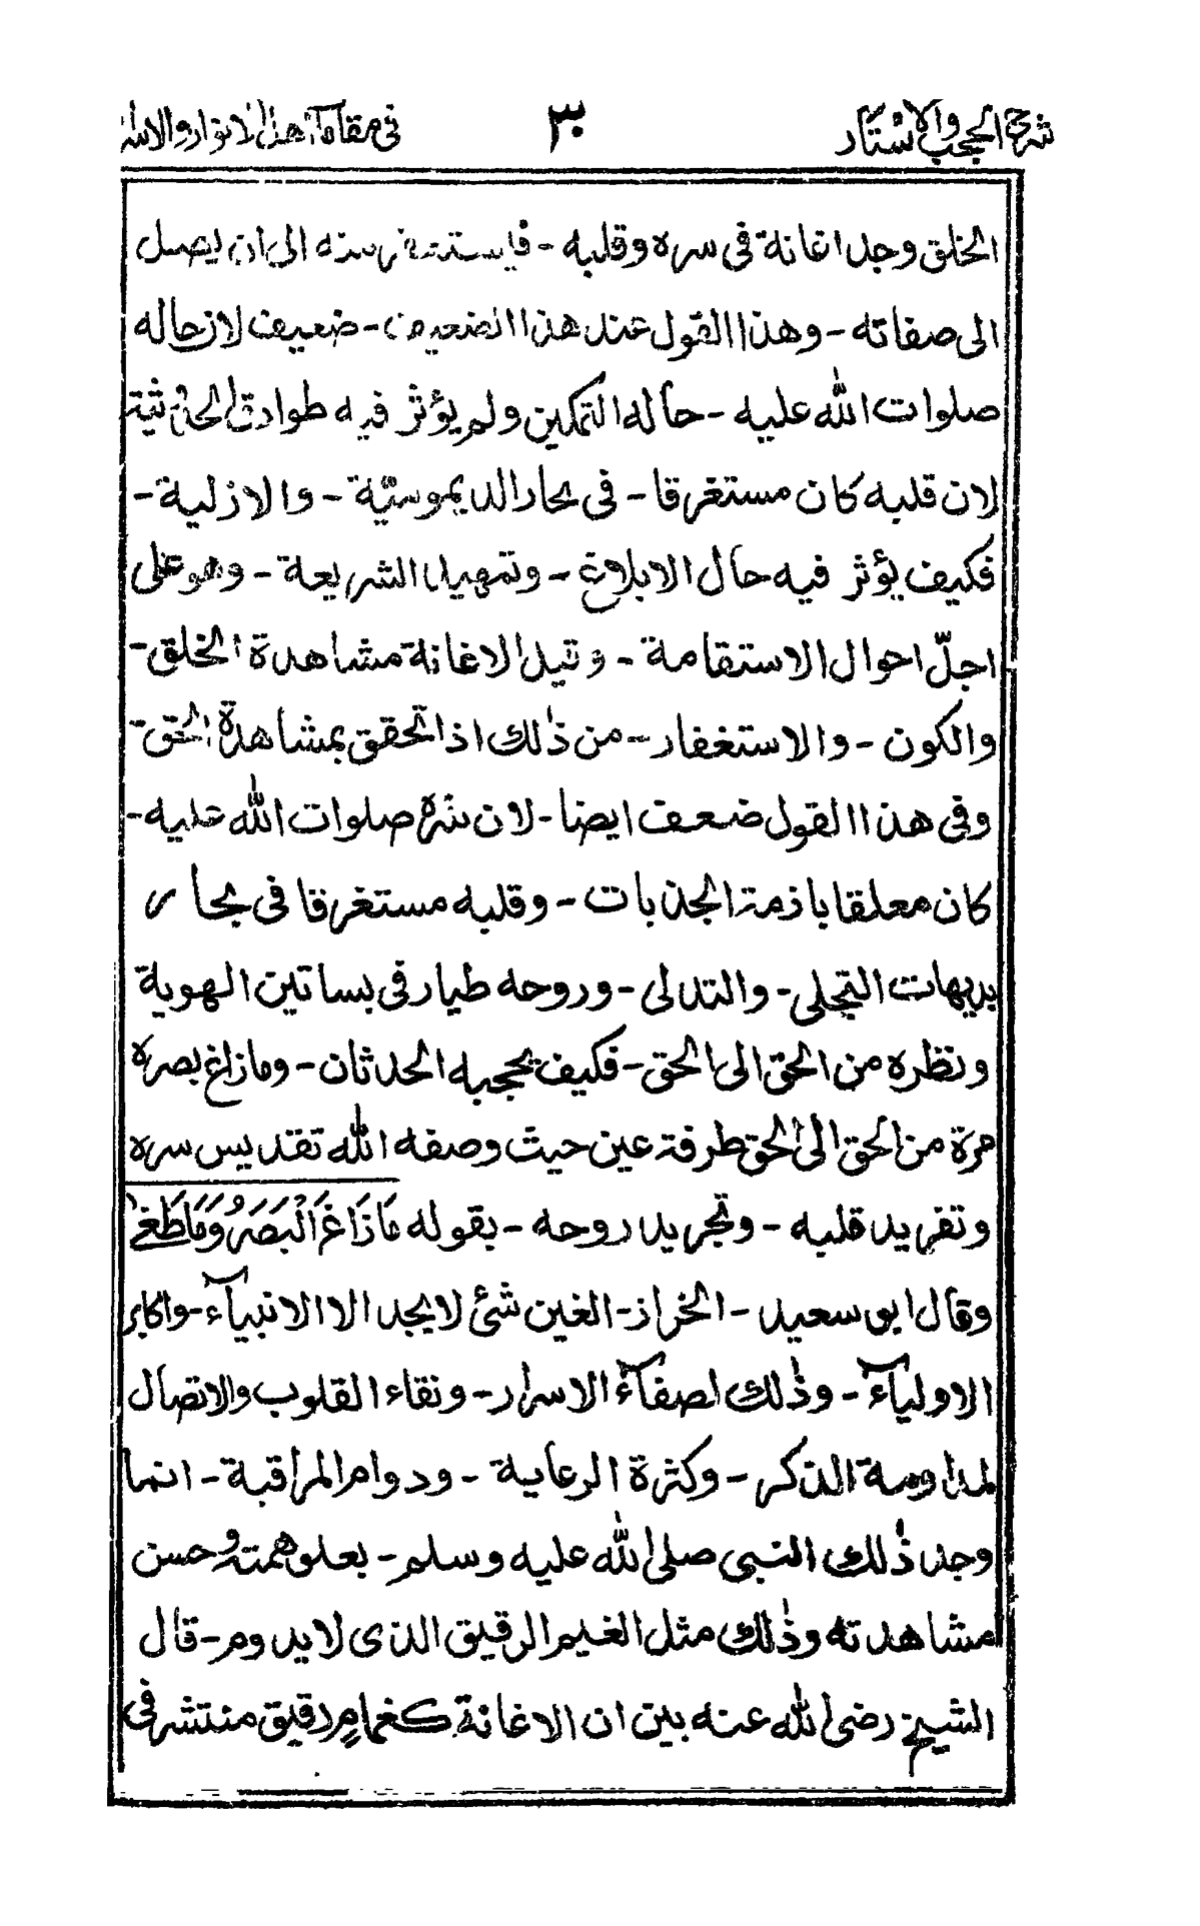 شرح الحجب والاستار
٣٠
فى مقامات هذا الانوار والاسرار
الخلق وجد اغانة فى سره وقلبه - فيستغفر منه الى ان يصل
الى صفاته - وهذا القول عند هذا الضعيف - ضعيف لان حاله
صلوات الله عليه - حاله التمكين ولم يؤثر فيه طوارق الحدثية
لان قلبه كان مستغرقا - فى بحار الديموسيّة - والازلية -
فكيف يؤثر فيه حال الابلاغ - وتمهيد الشريعة - وهو على
اجلّ احوال الاستقامة - وقيل الاغانة مشاهدة الخلق -
والكون - والاستغفار - من ذٰلك اذا تحقق بمشاهدة الحق -
وفى هذا القول ضعف ايضا - لان سره صلوات الله عليه -
كان معلقا باذمة الجذبات - وقلبه مستغرقا فى بحار
بديهات التجلى - والتدلى - وروحه طيار فى بساتين الهوية
ونظره من الحق الى الحق - فكيف يحجبه الحدثان - وما زاغ بصره
مرة من الحق الى الحق طرفة عين حيث وصفه الله تقديس سره
وتفريد قلبه - وتجريد روحه - بقوله مَا زَاغَ الْبَصَرُ وَمَا طَغٰى
وقال ابو سعيد - الخراز - الغين شئ لا يجد الا الانبيآء - واكابر
الاوليآء - وذٰلك لصفآء الاسرار - ونقاء القلوب والاتصال
لمداومة الذكر - وكثرة الرعاية - ودوام المراقبة - انما
وجد ذٰلك النبى صلى الله عليه وسلم - بعلو همته وحسن
مشاهدته وذٰلك مثل الغيم الرقيق الذى لا يدوم - قال
الشيخ رضى الله عنه بين ان الاغانة كغمامٍ رقيق منتشر فى